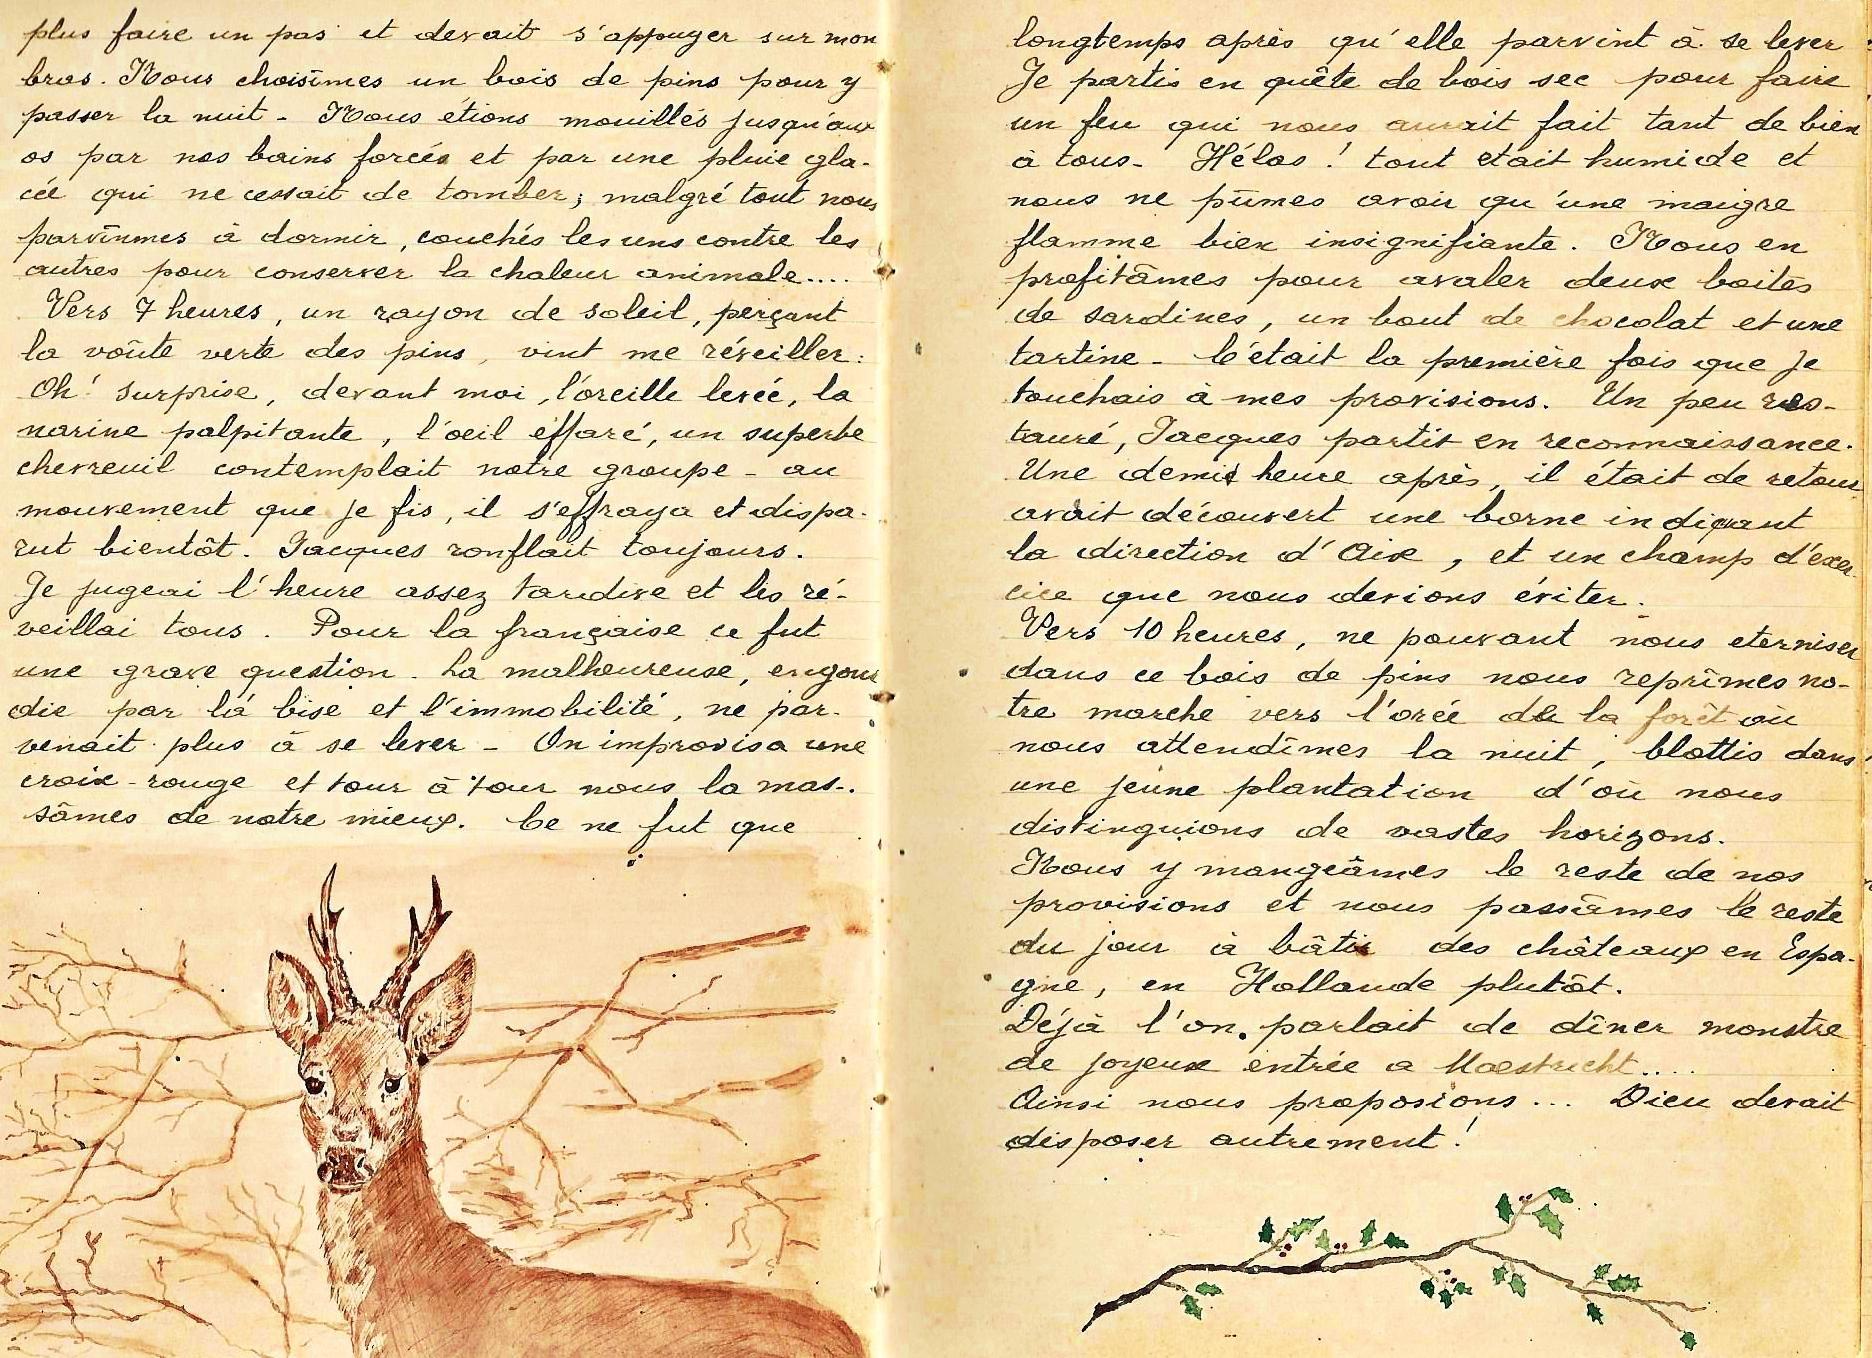 plus faire un pas et devait s'appuyer sur mon
bras. Nous choisîmes un bois de pins pour y
passer la nuit - Nous étions mouillés jusqu'aux
os par nos bains forcés et par une pluie gla-
cée qui ne cessait de tomber; malgré tout nous
parvînmes à dormir, couchés les uns contre les
autres pour conserver la chaleur animale....
Vers 7 heures, un rayon de soleil, perçant
la voûte verte des pins, vint me réveiller:
Oh! surprise, devant moi, l'oreille levée, la
narine palpitante, l'oeil effaré, un superbe
chevreuil contemplait notre groupe - au
mouvement que je fis, il s'effraya et dispa-
rut bientôt. Jacques ronflait toujours.
Je jugeai l'heure assez tardive et les ré-
veillai tous. Pour la française ce fut
une grave question. La malheureuse, engour
die par la bise et l'immobilité, ne par-
venait plus à se lever - On improvisa une
croix-rouge et tour à tour nous la mas-
sâmes de notre mieux. Ce ne fut que
longtemps après qu'elle parvint à se lever
Je partis en quête de bois sec pour faire
un feu qui nous aurait fait tant de bien
à tous - Hélas! tout etait humide et
nous ne pûmes avoir qu'une maigre
flamme bien insignifiante. Nous en
profitâmes pour avaler deux boites
de sardines, un bout de chocolat et une
tartine - C'était la première fois que je
touchais à mes provisions. Un peu res-
tauré, Jacques partit en reconnaissance.
Une demi heure après, il était de retour
avait découvert une borne indiquant
la direction d'Aix, et un champ d'exer-
cice que nous devions éviter.
Vers 10 heures, ne pouvant nous eterniser
dans ce bois de pins nous reprîmes no-
tre marche vers l'orée de la forêt où
nous attendîmes la nuit, blottis dans
une jeune plantation d'où nous
distinguions de vastes horizons.
Nous y mangeâmes le reste de nos
provisions et nous passâmes le reste
du jour à bâtir des châteaux en Espa-
gne, en Hollande plutôt.
Déjà l'on parlait de dîner monstre
de joyeuse entrée a Maestricht....
Ainsi nous proposions... Dieu devait
disposer autrement!